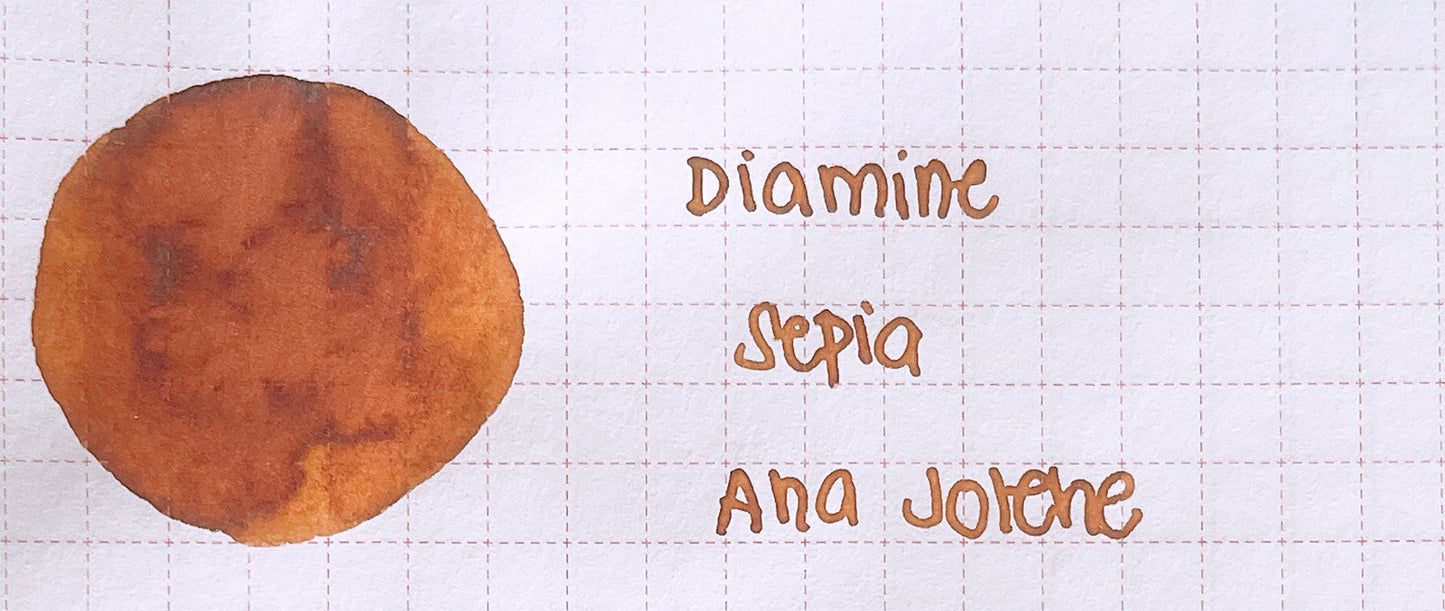 Diamine
Sepia
Ana Jolene